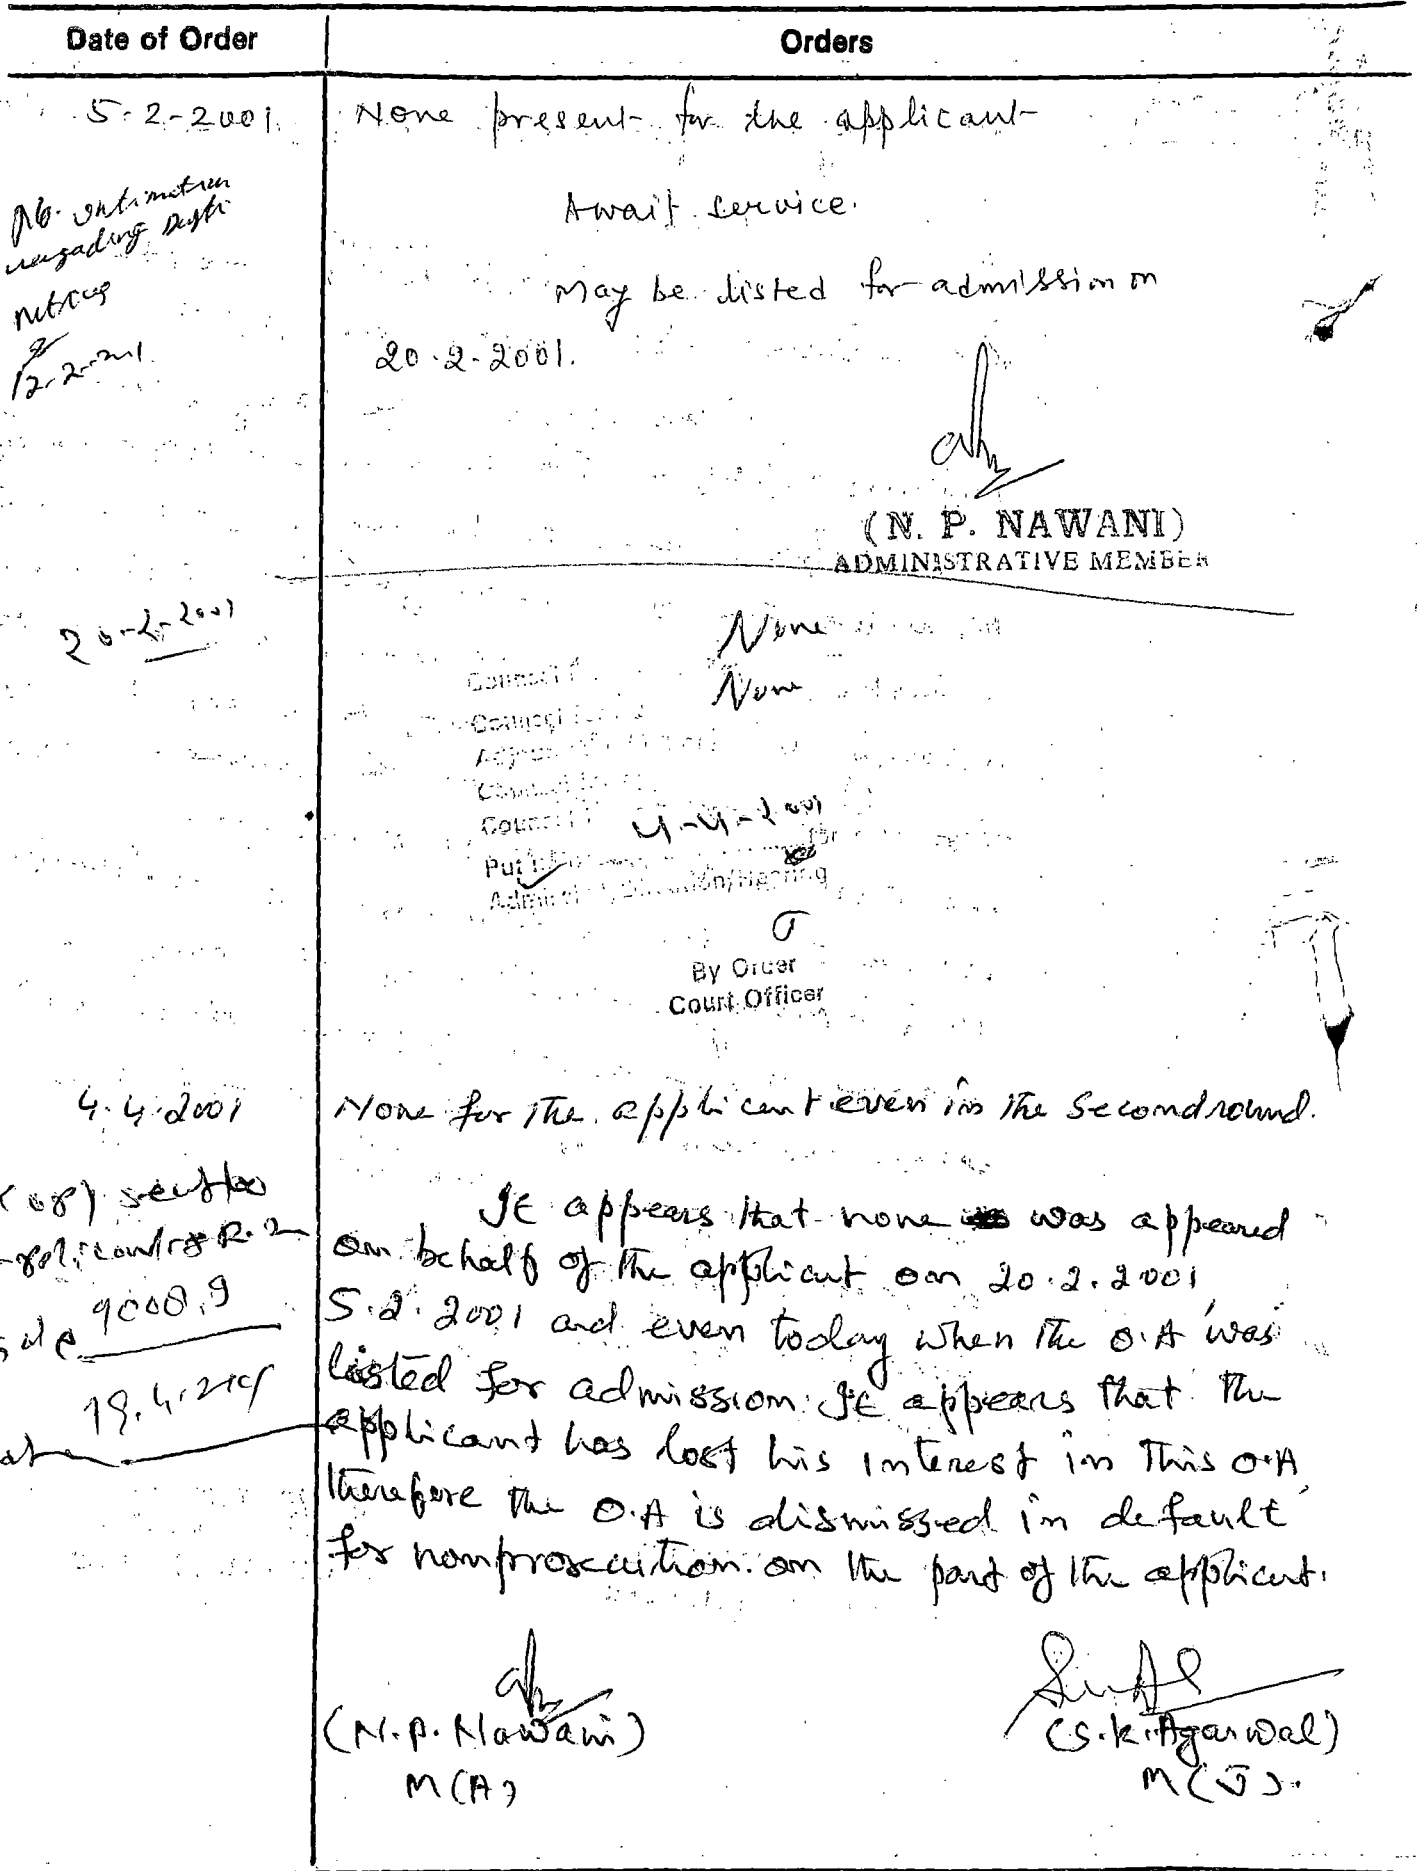 Date of Order
Orders
5-2-2001
None present for the applicant
No. intimation
regading Dasti
notices
12-2-2001
Await service.
May be listed for admission on
20.2.2001.
(N. P. NAWANI)
ADMINISTRATIVE MEMBER
20-2-2001
None
Counsel
None
Counsel
Counsel
4-4-2001
Put
for
/Hearing
By Order
Court Officer
4.4.2001
None for the applicant even in the second round.
It appears that none was appeared
on behalf of the applicant on 20.2.2001,
5.2.2001 and even today when the O.A was
listed for admission. It appears that the
applicant has lost his interest in this O.A,
therefore the O.A is dismissed in default
for nonprosecution on the part of the applicant.
(N.P. Nawani)
M(A)
(S.K. Agarwal)
M(J).